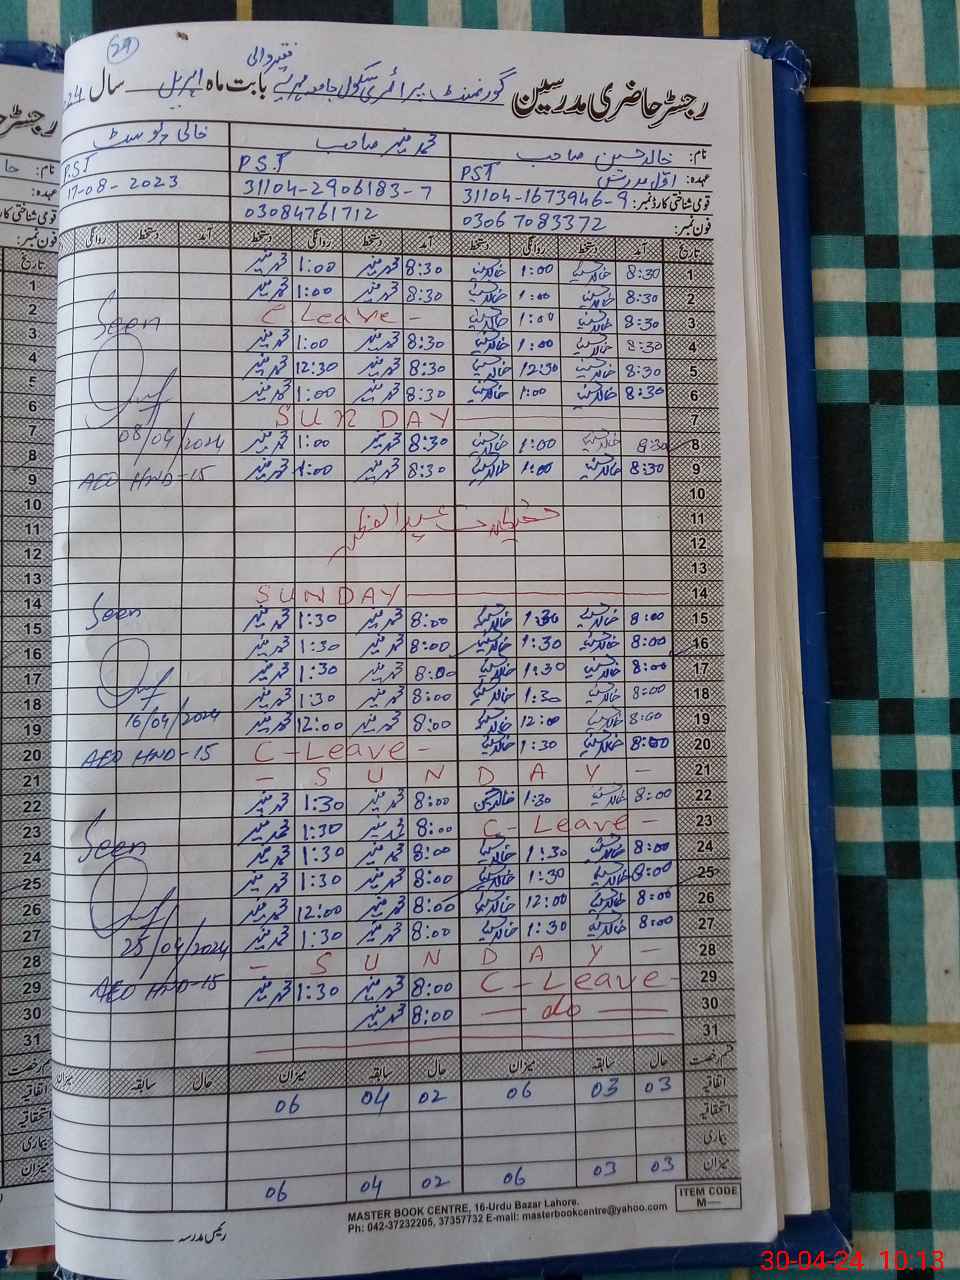 59
رجسٹر حاضری مدرسین گورنمنٹ پرائمری سکول بابت ماہ اپریل سال 24
نام: خالد حسین صاحب محمد منیر صاحب خالی پوسٹ
عہدہ: اول مدرس PST P.S.T P.S.T
قومی شناختی کارڈ نمبر: 31104-1673946-9 31104-2906183-7 17-08-2023
فون نمبر: 03067083372 03084761712
تاریخ آمد دستخط روانگی دستخط آمد دستخط روانگی دستخط آمد دستخط روانگی
1 8:30 خالد حسین 1:00 خالد حسین 8:30 محمد منیر 1:00 محمد منیر
2 8:30 خالد حسین 1:00 خالد حسین 8:30 محمد منیر 1:00 محمد منیر
3 8:30 خالد حسین 1:00 خالد حسین C Leave - Seen
4 8:30 خالد حسین 1:00 خالد حسین 8:30 محمد منیر 1:00 محمد منیر
5 8:30 خالد حسین 12:30 خالد حسین 8:30 محمد منیر 12:30 محمد منیر
6 8:30 خالد حسین 1:00 خالد حسین 8:30 محمد منیر 1:00 محمد منیر
7 SUNDAY
8 8:30 خالد حسین 1:00 خالد حسین 8:30 محمد منیر 1:00 محمد منیر 08/04/2024
9 8:30 خالد حسین 1:00 خالد حسین 8:30 محمد منیر 1:00 محمد منیر AEO HND-15
10
11 عید الفطر
12
13
14 SUNDAY
15 8:00 خالد حسین 1:30 خالد حسین 8:00 محمد منیر 1:30 محمد منیر Seen
16 8:00 خالد حسین 1:30 خالد حسین 8:00 محمد منیر 1:30 محمد منیر
17 8:00 خالد حسین 1:30 خالد حسین 8:00 محمد منیر 1:30 محمد منیر
18 8:00 خالد حسین 1:30 خالد حسین 8:00 محمد منیر 1:30 محمد منیر
19 8:00 خالد حسین 12:00 خالد حسین 8:00 محمد منیر 12:00 محمد منیر 16/04/2024
20 8:00 خالد حسین 1:30 خالد حسین C-Leave - AEO HND-15
21 - SUNDAY -
22 8:00 خالد حسین 1:30 خالد حسین 8:00 محمد منیر 1:30 محمد منیر
23 C-Leave - 8:00 محمد منیر 1:30 محمد منیر Seen
24 8:00 خالد حسین 1:30 خالد حسین 8:00 محمد منیر 1:30 محمد منیر
25 8:00 خالد حسین 1:30 خالد حسین 8:00 محمد منیر 1:30 محمد منیر
26 8:00 خالد حسین 12:00 خالد حسین 8:00 محمد منیر 12:00 محمد منیر
27 8:00 خالد حسین 1:30 خالد حسین 8:00 محمد منیر 1:30 محمد منیر 25/04/2024
28 - SUNDAY -
29 C-Leave - 8:00 محمد منیر 1:30 محمد منیر AEO HND-15
30 — do — 8:00 محمد منیر
31
قسم رخصت حال سابقہ میزان حال سابقہ میزان حال سابقہ میزان
اتفاقیہ 03 03 06 02 04 06
استحقاقیہ
بیماری
میزان 03 03 06 02 04 06
ITEM CODE
M—
MASTER BOOK CENTRE, 16-Urdu Bazar Lahore.
Ph: 042-37232205, 37357732 E-mail: masterbookcentre@yahoo.com
رئیس مدرسہ
30-04-24 10:13